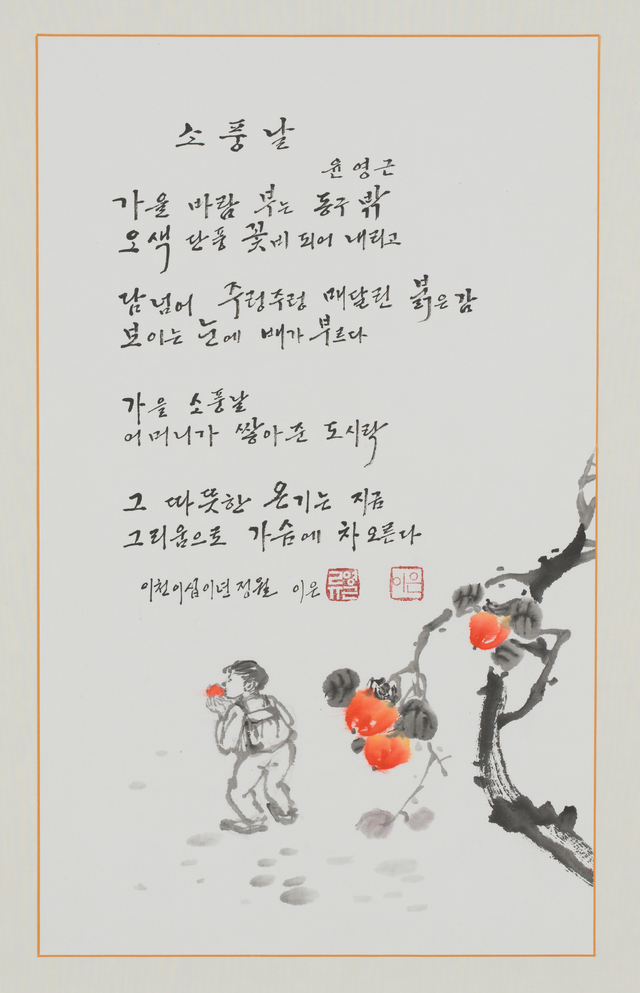 소풍날
윤영근
가을 바람 부는 동구 밖
오색 단풍 꽃비 되어 내리고
담 넘어 주렁주렁 매달린 붉은 감
보이는 눈에 배가 부르다
가을 소풍날
어머니가 쌓아준 도시락
그 따뜻한 온기는 지금
그리움으로 가슴에 차오른다
이천이십이년 정월 이은
이은